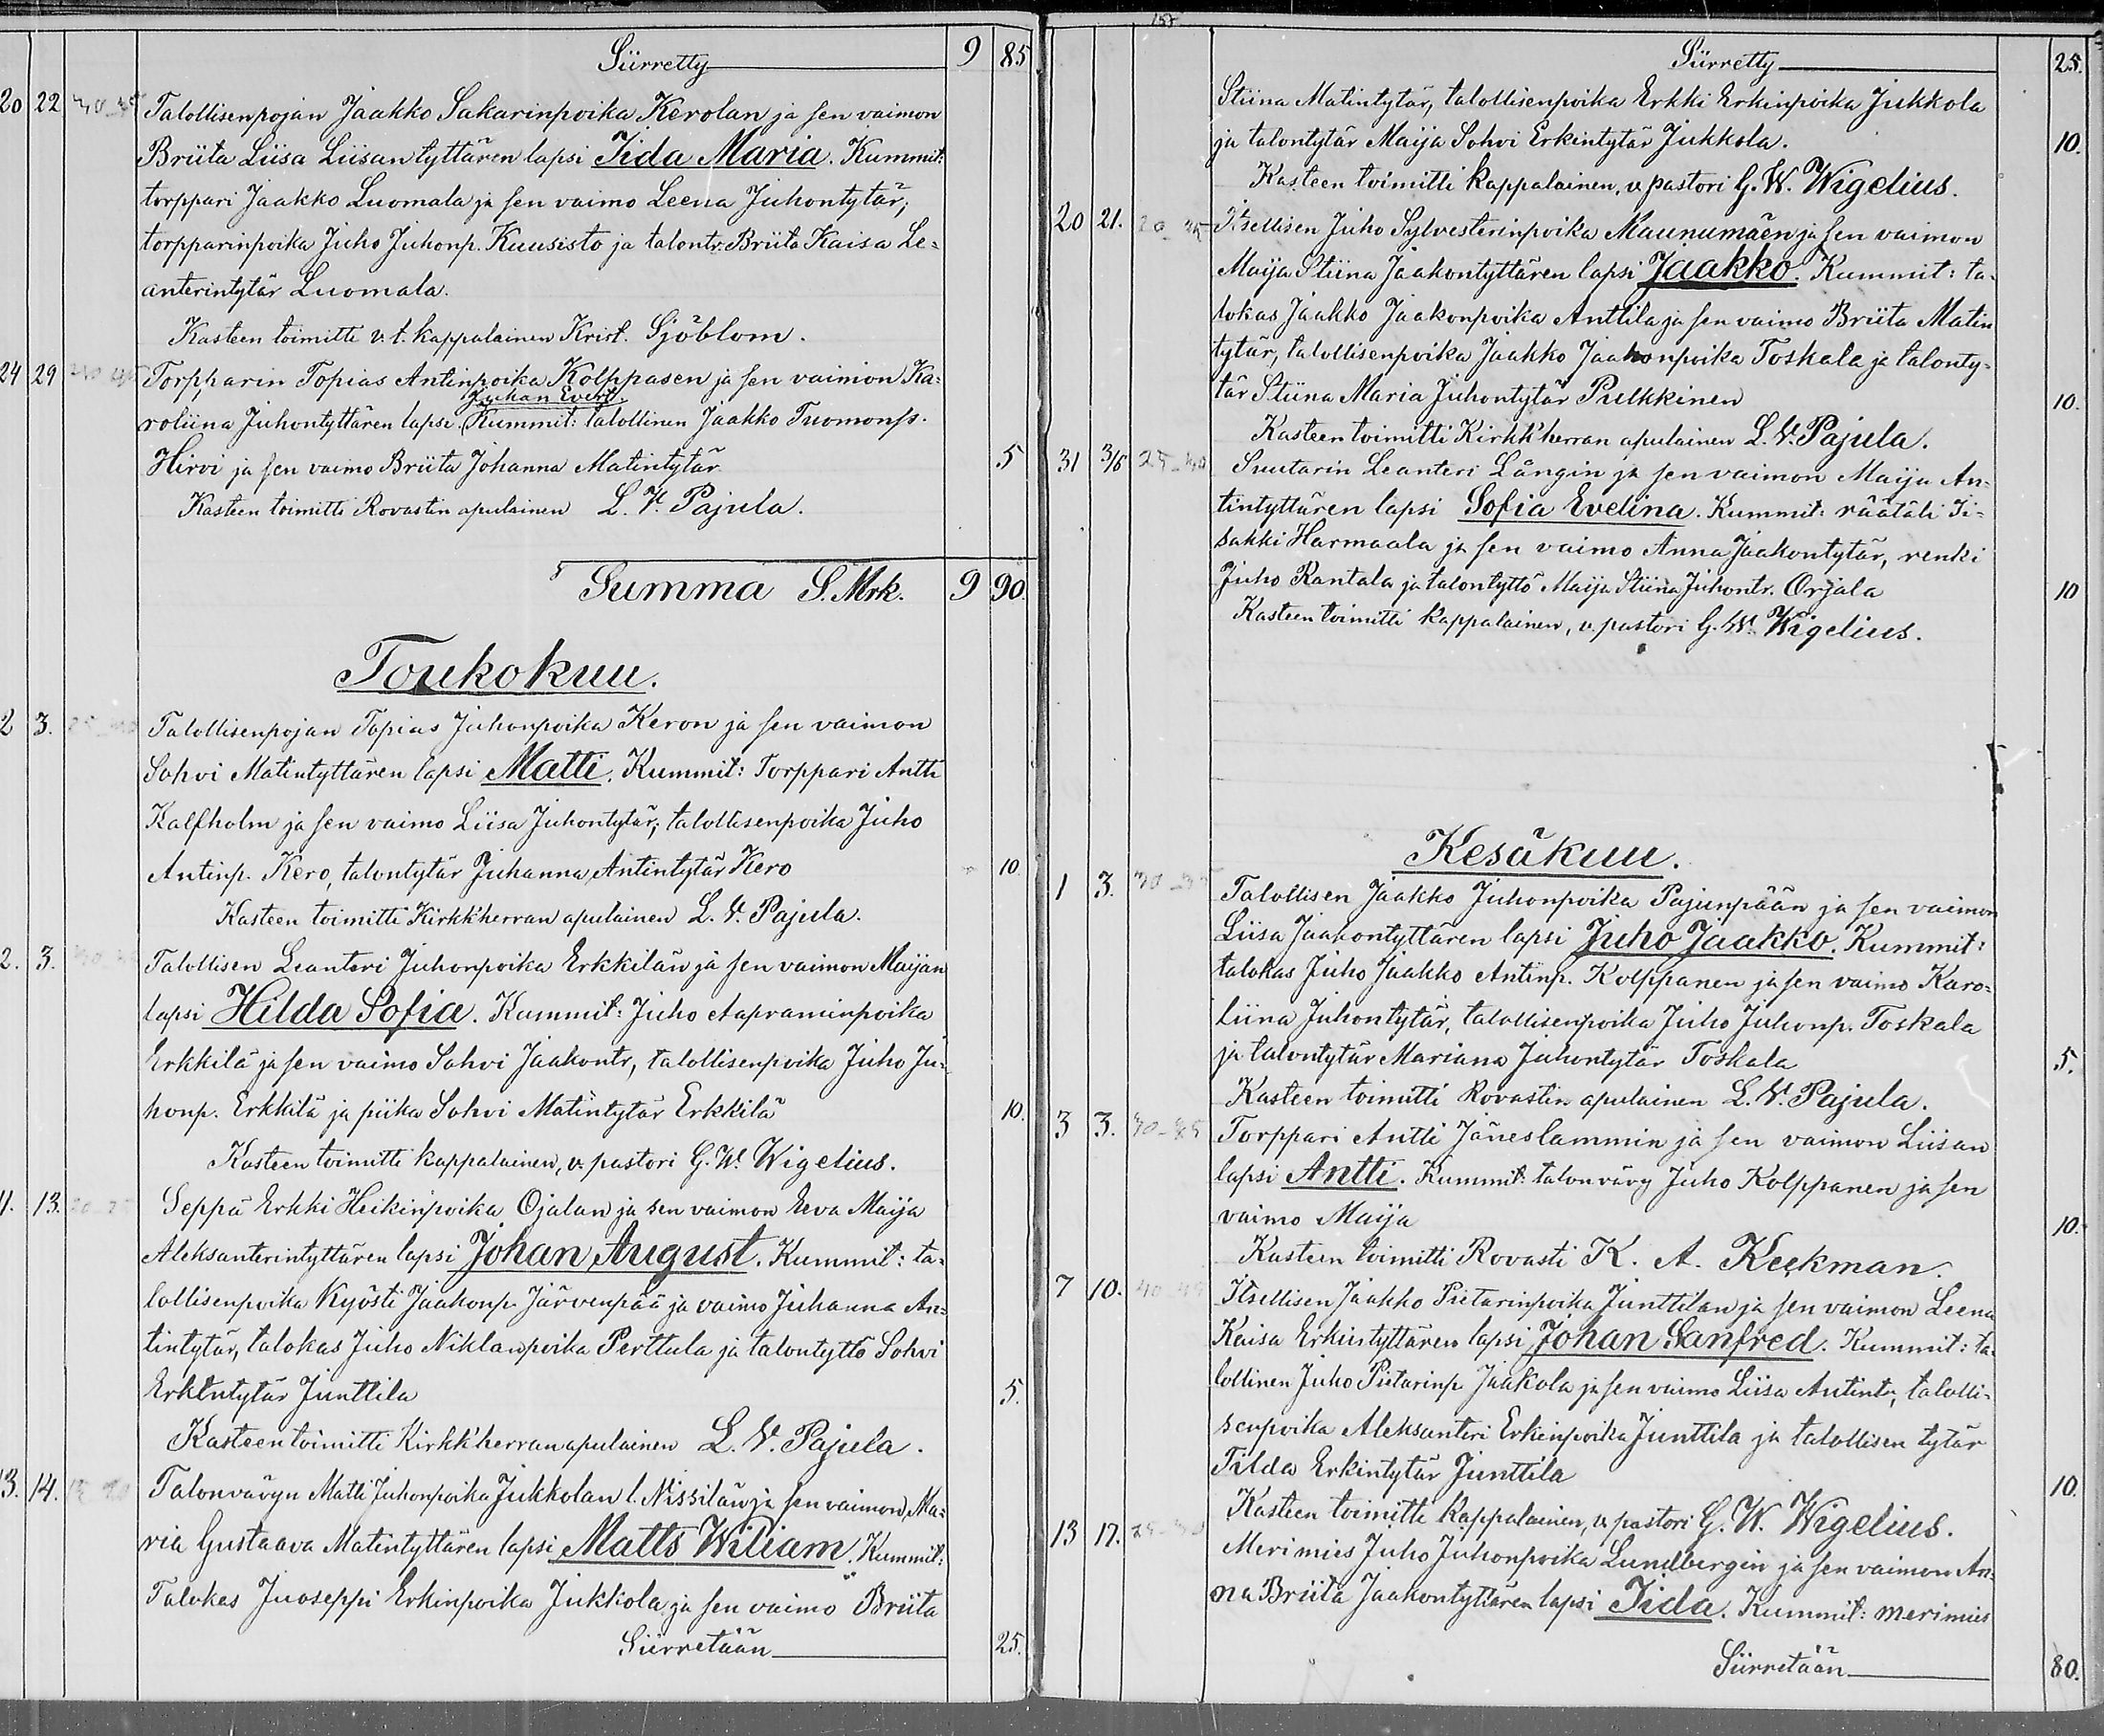 Siirretty 9 85
20 22 30-35 Talollisenpojan Jaakko Sakarinpoika Kerolan ja sen vaimon
Briita Liisa Liisantyttären lapsi Iida Maria. Kummit:
torppari Jaakko Luomala ja sen vaimo Leena Juhontytär,
torpparinpoika Juho Juhonp. Kuusisto ja talontr. Briita Kaisa Le=
anterintytär Luomala.
Kasteen toimitti v. t. kappalainen Krist. Sjöblom.
24 29 Torpparin Topias Antinpoika Kolppasen ja sen vaimon Ka=
Juhan Evert.
roliina Juhontyttären lapsi. Kummit: talollinen Jaakko Tuomonp.
Hirvi ja sen vaimo Briita Johanna Matintytär 5
Kasteen toimitti Rovastin apulainen L. V. Pajula.
Summa S. Mrk. 9 90.
Toukokuu.
2 3. Talollisenpojan Topias Juhonpoika Keron ja sen vaimon
Sohvi Matintyttären lapsi Matti. Kummit: Torppari Antti
Kalfholm ja sen vaimo Liisa Juhontytär; talollisenpoika Juho
Antinp. Kero, talontytär Juhanna Antintytär Kero 10
Kasteen toimitti Kirkk'herran apulainen L. V. Pajula.
2. 3. Talollisen Leanteri Juhonpoika Erkkilän ja sen vaimon Maijan
lapsi Hilda Sofia. Kummit: Juho Aapraminpoika
Erkkilä ja sen vaimo Sohvi Jaakontr, talollisenpoika Juho Ju=
honp. Erkkilä ja piika Sohvi Matintytär Erkkilä 10.
Kasteen toimitti kappalainen, v. pastori G. W. Wigelius.
11. 13. Seppä Erkki Heikinpoika Ojalan ja sen vaimon Eeva Maija
Aleksanterintyttären lapsi Johan August. Kummit: ta=
lollisenpoika Kyösti Jaakonp. Järvenpää ja vaimo Juhanna An=
tintytär, talokas Juho Niklanpoika Perttula ja talontyttö Sohvi
Erkintytär Junttila 5.
Kasteen toimitti Kirkk'herran apulainen L. V. Pajula.
13. 14. Talonvävyn Matti Juhonpoika Jukkolan l. Nissilän ja sen vaimon Ma=
ria Gustaava Matintyttären lapsi Matts Wiliam. Kummit:
Talokas Juoseppi Erkinpoika Jukkola ja sen vaimo Briita
Siirretään 25.
157
Siirretty 25.
Stiina Matintytär, talollisenpoika Erkki Erkinpoika Jukkola
ja talontytär Maija Sohvi Erkintytär Jukkola. 10.
Kasteen toimitti kappalainen, v. pastori G. W. Wigelius.
20 21. Itsellisen Juho Sylvesterinpoika Maunumäen ja sen vaimon
Maija Stiina Jaakontyttären lapsi Jaakko. Kummit: ta=
lokas Jaakko Jaakonpoika Anttila ja sen vaimo Briita Matin
tytär, talollisenpoika Jaakko Jaakonpoika Toskala ja talonty=
tär Stiina Maria Juhontytär Pulkkinen 10.
Kasteen toimitti Kirkk'herran apulainen L. V. Pajula.
31 3/6 25-30 Suutarin Leanteri Långin ja sen vaimon Maija An=
tintyttären lapsi Sofia Evelina. Kummit: räätäli Ii=
sakki Harmaala ja sen vaimo Anna Jaakontytär, renki
Juho Rantala ja talontyttö Maija Stiina Juhontr. Orjala 10
Kasteen toimitti kappalainen, v. pastori G. W. Wigelius.
Kesäkuu.
1 3. 30-35 Talollisen Jaakko Juhonpoika Pajunpään ja sen vaimon
Liisa Jaakontyttären lapsi Juho Jaakko. Kummit:
talokas Juho Jaakko Antinp. Kolppanen ja sen vaimo Karo=
liina Juhontytär, talollisenpoika Juho Juhonp. Toskala
ja talontytär Mariana Juhontytär Toskala 5.
Kasteen toimitti Rovastin apulainen L. V. Pajula.
3 3. Torppari Antti Jäneslammin ja sen vaimon Liisan
lapsi Antti. Kummit: talonvävy Juho Kolppanen ja sen
vaimo Maija 10.
Kasteen toimitti Rovasti K. A. Keckman.
7 10. 40-45 Itsellisen Jaakko Pietarinpoika Junttilan ja sen vaimon Leena
Kaisa Erkintyttären lapsi Johan Sanfred. Kummit: ta=
lollinen Juho Pietarinp. Jaakola ja sen vaimo Liisa Antintr, talolli=
senpoika Aleksanteri Erkinpoika Junttila ja talollisen tytär
Tilda Erkintytär Junttila 10.
Kasteen toimitti kappalainen, v. pastori G. W. Wigelius.
13 17. 25-30 Merimies Juho Juhonpoika Lundbergin ja sen vaimon An=
na Briita Jaakontyttären lapsi Iida. Kummit: merimies
Siirretään 80.